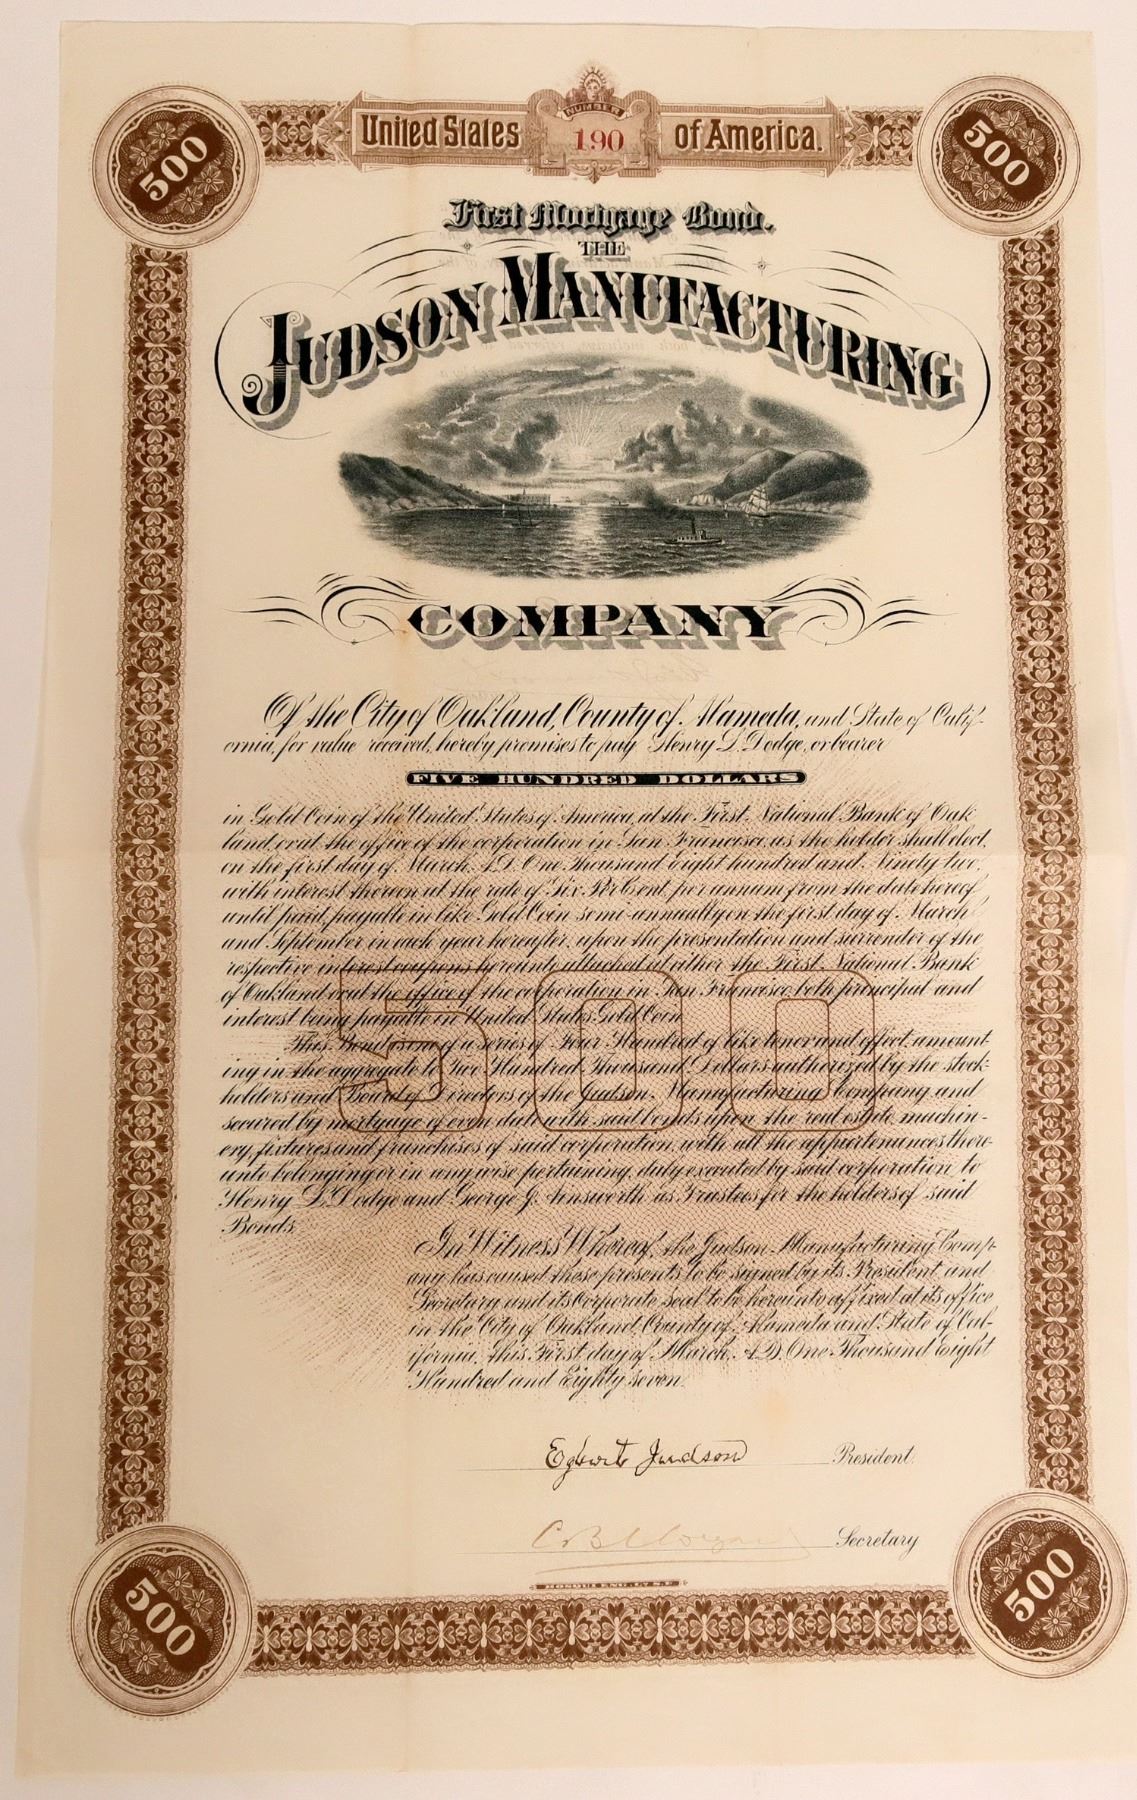 NUMBER
United States 190 of America.
500
500
First Mortgage Bond.
THE
JUDSON MANUFACTURING
COMPANY
Of the City of Oakland, County of Alameda, and State of Calif-
ornia, for value received, hereby promises to pay Henry L. Dodge, or bearer
FIVE HUNDRED DOLLARS
in Gold Coin of the United States of America, at the First National Bank of Oak
land, or at the office of the corporation in San Francisco, as the holder shall elect,
on the first day of March, A.D. One Thousand Eight hundred and Ninety two,
with interest thereon at the rate of Six Per Cent per annum from the date hereof
until paid, payable in like Gold Coin semi-annually on the first day of March
and September in each year hereafter, upon the presentation and surrender of the
respective interest coupons hereunto attached at either the First National Bank
of Oakland or at the office of the corporation in San Francisco, both principal and
interest being payable in United States Gold Coin.
This Bond is one of a series of Four Hundred of like tenor and effect, amount
ing in the aggregate to Two Hundred Thousand Dollars authorized by the stock-
holders and Board of Directors of the Judson Manufacturing Company, and
secured by mortgage of even date with said bonds upon the real estate, machin-
ery, fixtures and franchises of said corporation, with all the appurtenances there-
unto belonging or in any wise pertaining, duly executed by said corporation to
Henry L. Dodge and George J. Ainsworth as Trustees for the holders of said
Bonds.
500
In Witness Whereof, the Judson Manufacturing Comp-
any has caused these presents to be signed by its President and
Secretary and its Corporate Seal to be hereunto affixed at its office
in the City of Oakland, County of Alameda and State of Cal-
ifornia, this First day of March, A.D. One Thousand Eight
Hundred and Eighty seven.
Egbert Judson President.
C B Morgan Secretary
BOSQUI ENG. Co. S.F.
500
500